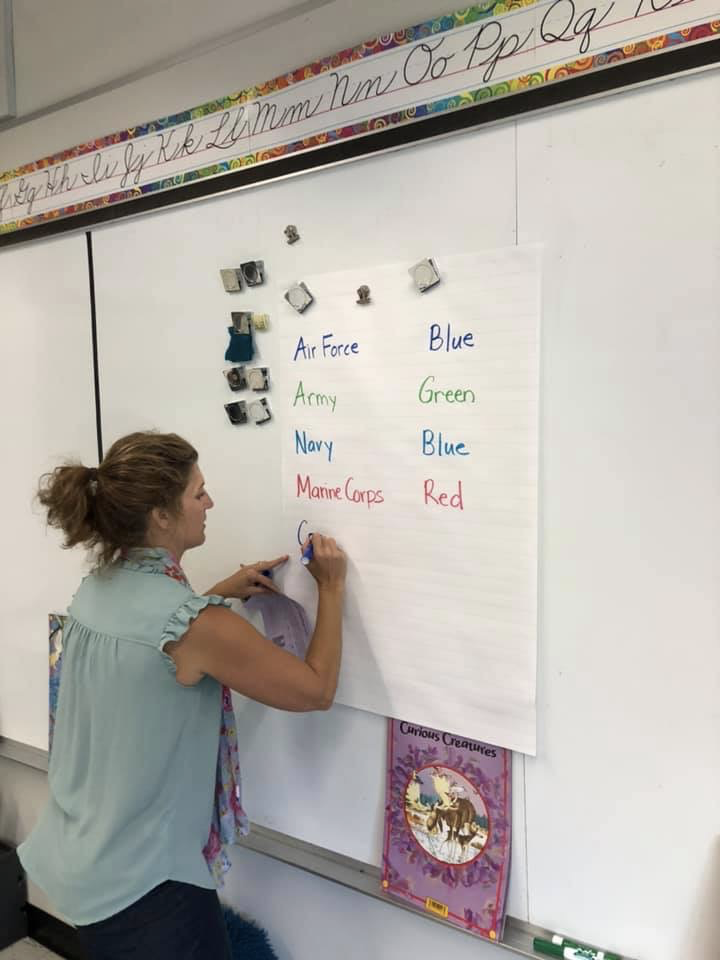 Gg Hh Ii Jj Kk Ll Mm Nn Oo Pp Qq
Air Force Blue
Army Green
Navy Blue
Marine Corps Red
C
Curious Creatures